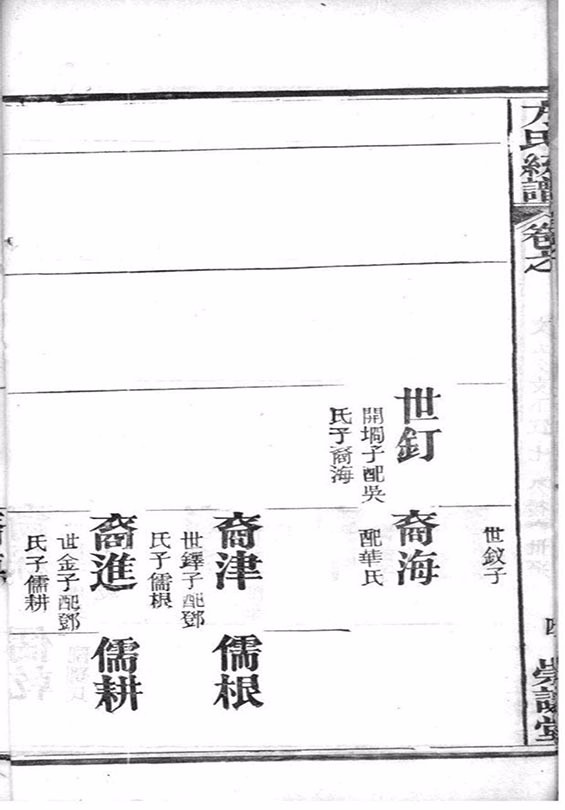 方氏統譜
卷之
四
世釵子
世釘
開堈子配吳
氏子裔海
裔海
配華氏
裔津
世鐸子配鄧
氏子儒根
儒根
裔進
世金子配鄧
氏子儒耕
儒耕